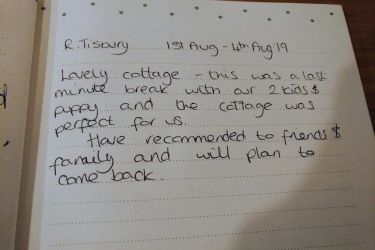 R. Tisbury 1st Aug - 4th Aug 19
Lovely cottage - this was a last
minute break with our 2 kids &
puppy and the cottage was
perfect for us.
Have recommended to friends &
family and will plan to
come back.